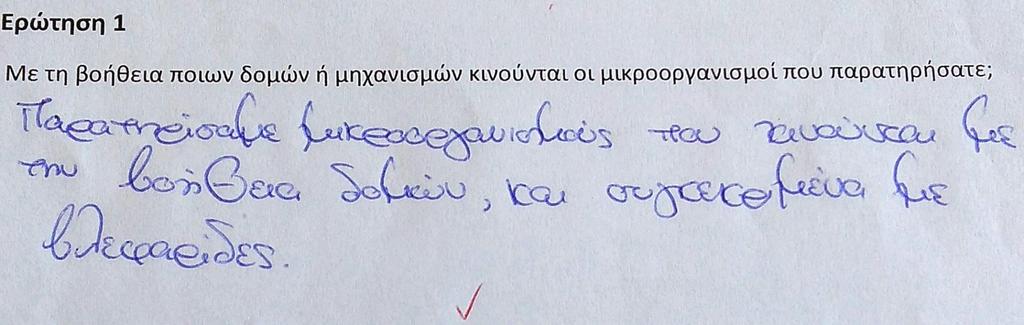 Ερώτηση 1
Με τη βοήθεια ποιων δομών ή μηχανισμών κινούνται οι μικροοργανισμοί που παρατηρήσατε;
Παρατηρείσαμε μικροοργανισμούς που κινούνται με
την βοήθεια δομών, και συγκεκριμένα με
βλεφαρίδες.